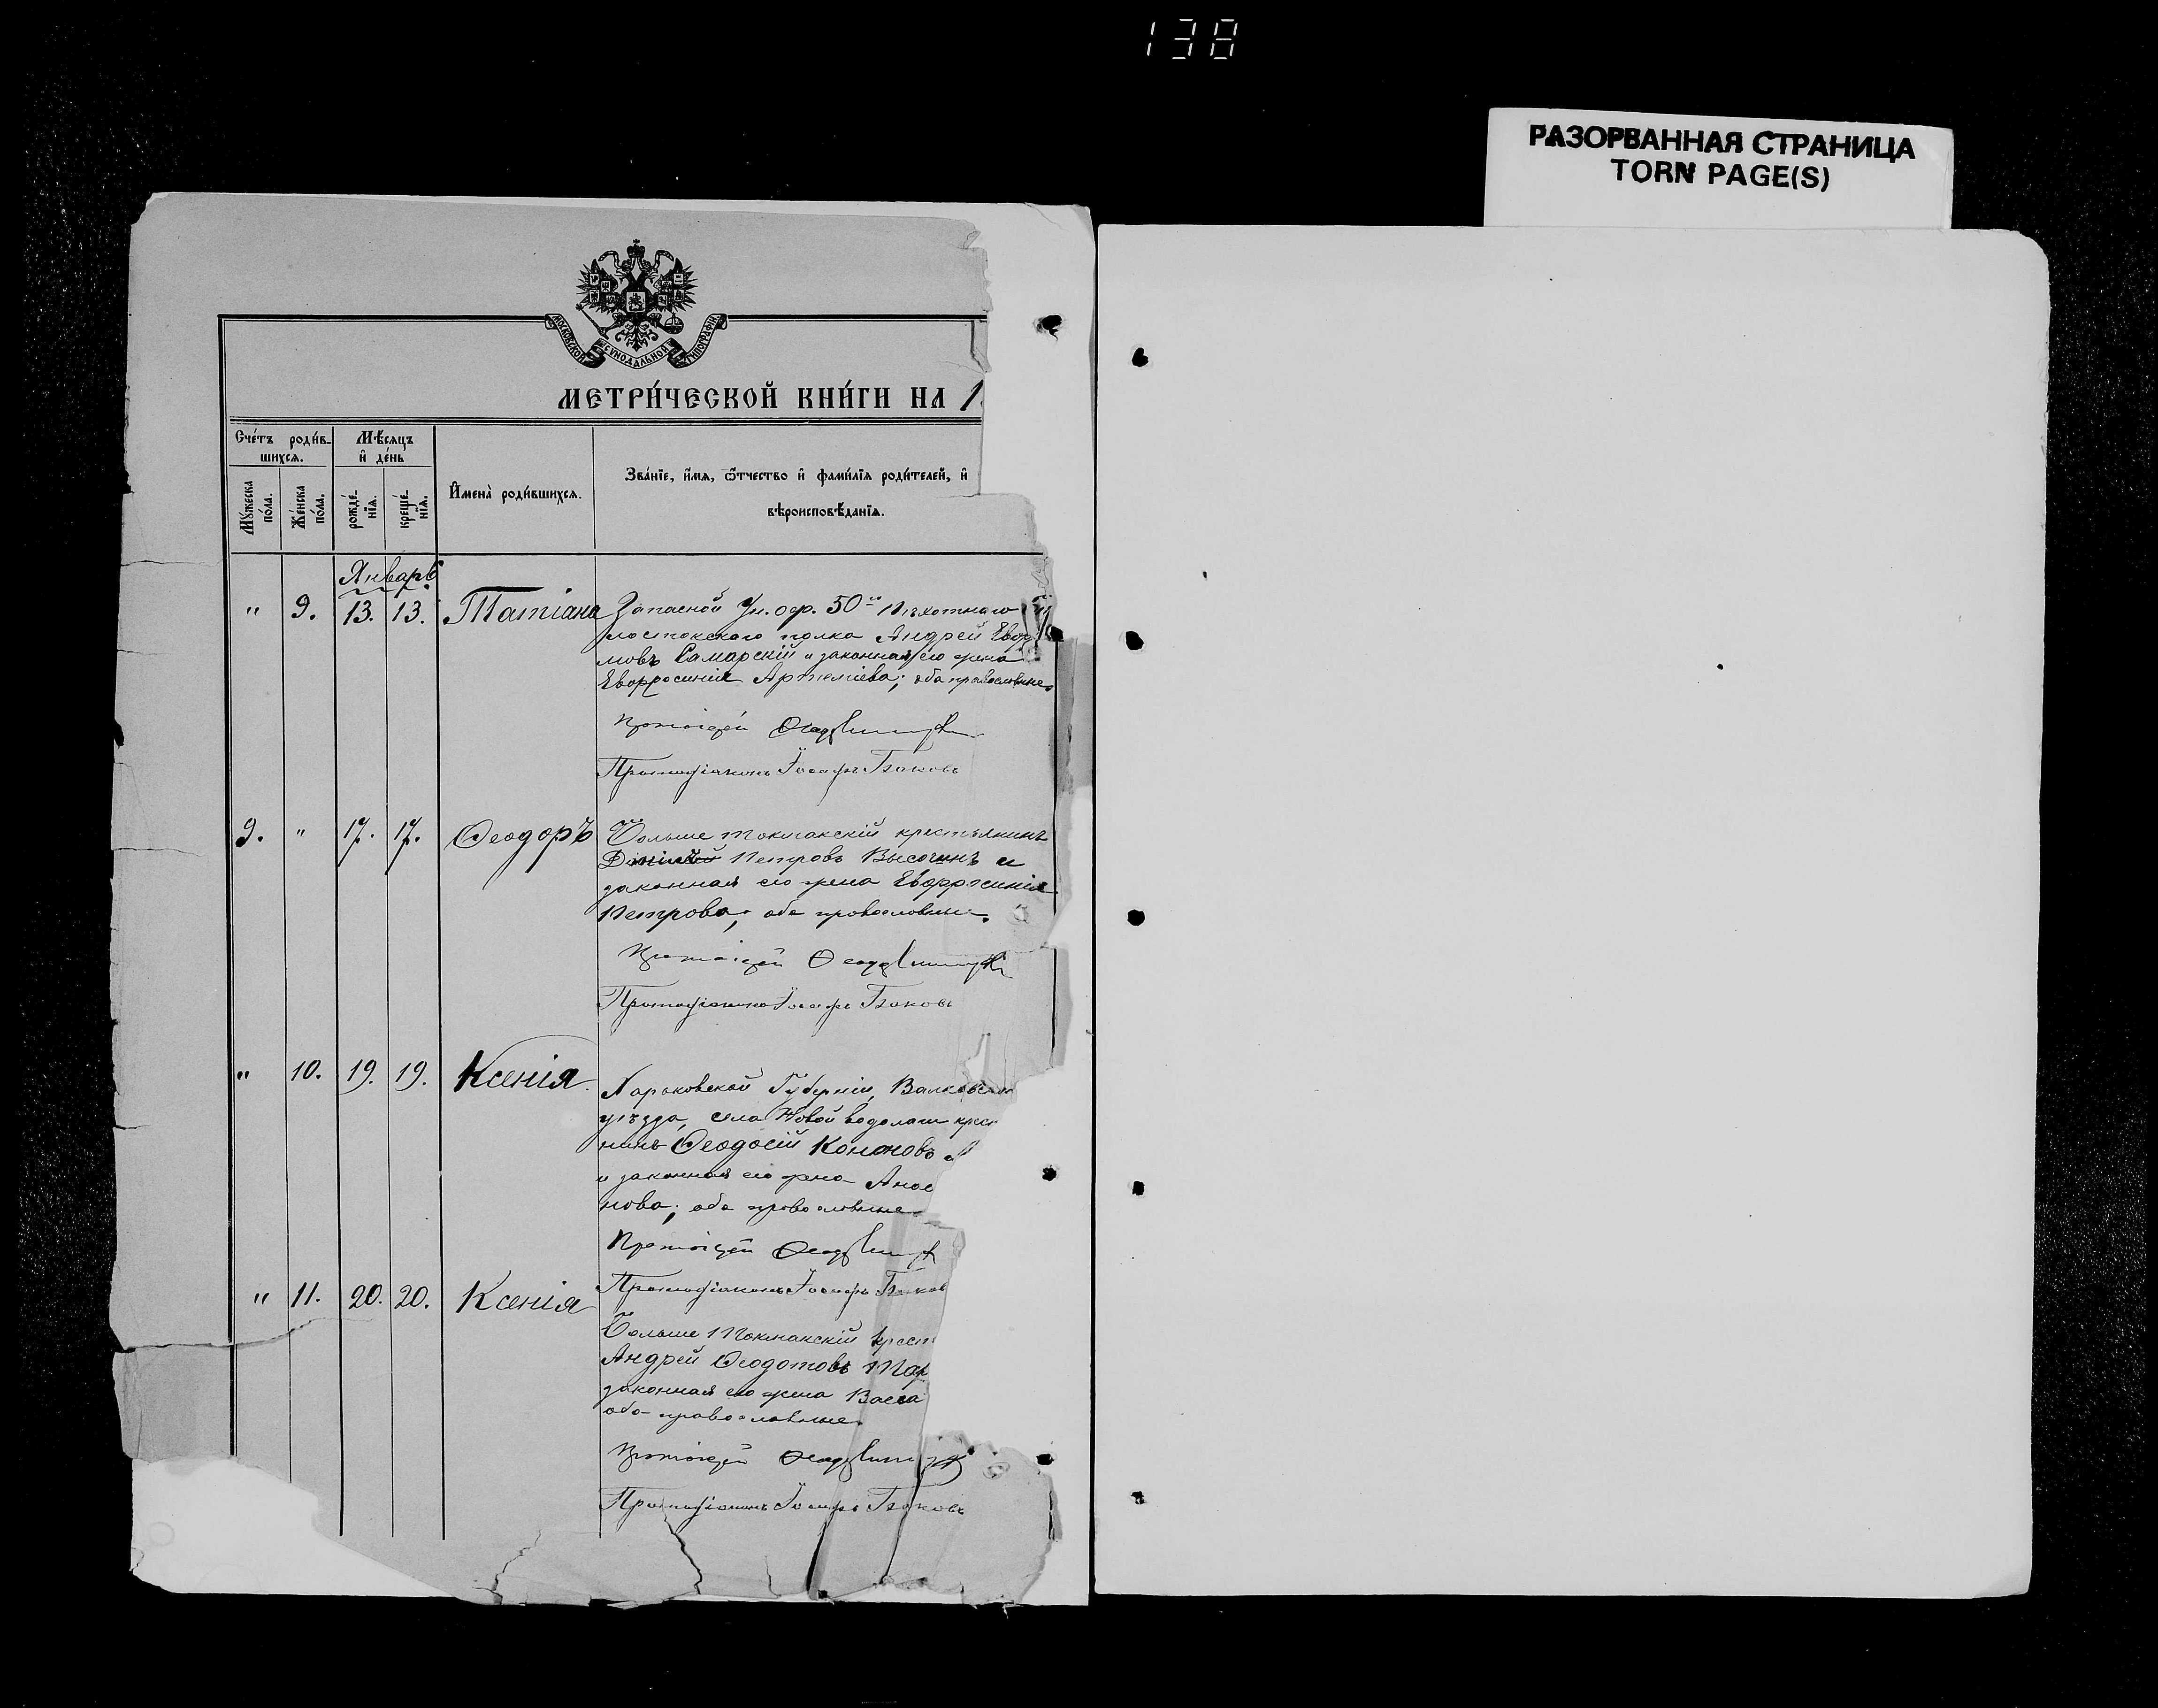 138
РАЗОРВАННАЯ СТРАНИЦА
TORN PAGE(S)
МОСКОВСКОЙ СѴНОДАЛЬНОЙ ТИПОГРАФІИ
МЕТРИ́ЧЕСКОЙ КНИ́ГИ НА 1
Сче́тъ роди́в-
шихсѧ.
Мѣ́сѧцъ
и҆ де́нь
Мꙋ́жеска по́ла.
Же́нска по́ла.
рожде́-нїѧ.
креще́-нїѧ.
И҆мена̀ роди́вшихсѧ.
Зва́нїе, и҆́мѧ, ѻ҆́тчество и҆ фами́лїѧ роди́телей, и҆
вѣроисповѣ́данїѧ.
Январь
" 9. 13. 13. Татіана Запасной Ун. оф. 50го Пѣхотнаго
лостокскаго полка Андрей
мовъ Самарскій и законная его жена
Евфросинія Артеміева; оба православные.
Протоіерей
Протодіаконъ Іоасафъ
9. " 17. 17. Ѳеодоръ Больше Токмакскій крестьянинъ
Петровъ Высочинъ и
законная его жена Евфросинія
Петрова; оба православные.
Протоіерей
Протодіаконъ Іоасафъ
" 10. 19. 19. Ксенія
Харьковской Губерніи, Валковскаго
уѣзда, села Новой Водолаги крес
нинъ Ѳеодосій Кононовъ
и законная его жена Анас
нова; оба православные
Протоіерей
Протодіаконъ Іоасафъ
" 11. 20. 20. Ксенія
Больше Токмакскій крест
Андрей Ѳеодотовъ
законная его жена Васса
оба православные.
Протоіерей
Протодіаконъ Іоасафъ